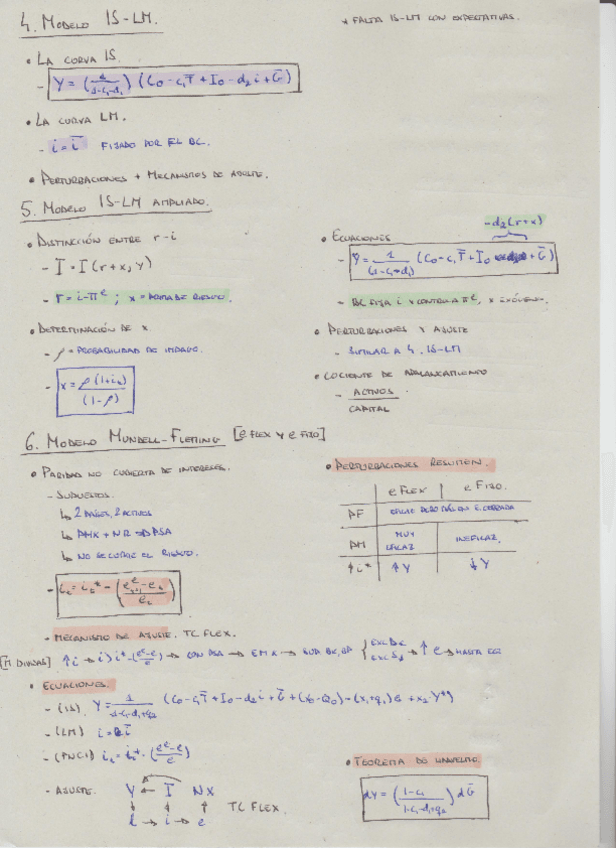 4. MODELO IS-LM.
* FALTA IS-LM CON EXPECTATIVAS.
• LA CURVA IS.
- Y = (1/(1-c₁-d₁)) (C₀ - c₁T̄ + I₀ - d₂i + Ḡ)
• LA CURVA LM.
- i = ī FIJADO POR EL BC.
• PERTURBACIONES + MECANISMOS DE AJUSTE.
5. MODELO IS-LM AMPLIADO.
• DISTINCIÓN ENTRE r-i
- I = I(r+x, Y)
- r = i - πᵉ ; x = PRIMA DE RIESGO.
• DETERMINACIÓN DE x
- ρ = PROBABILIDAD DE IMPAGO.
- x = ρ(1+i)/(1-ρ)
• ECUACIONES
-d₂(r+x)
- Y = 1/(1-c₁-d₁) (C₀ - c₁T̄ + I₀ + Ḡ)
- BC FIJA i Y CONTROLA πᵉ, x EXÓGENO.
• PERTURBACIONES Y AJUSTE
- SIMILAR A 4. IS-LM
• COCIENTE DE APALANCAMIENTO
- ACTIVOS
CAPITAL
6. MODELO MUNDELL-FLEMING [e FLEX Y e FIJO]
• PARIDAD NO CUBIERTA DE INTERESES.
- SUPUESTOS.
↳ 2 PAÍSES, 2 ACTIVOS
↳ NO SE CUBRE EL RIESGO.
- iₜ = iₜ* - ((eᵉₜ₊₁ - eₜ)/eₜ)
• PERTURBACIONES RESUMEN.
e FLEX e FIJO.
PF
PM MUY EFICAZ INEFICAZ.
↑i* ↑Y ↓Y
- MECANISMO DE AJUSTE. TC FLEX.
[M DIVISAS] ↑i → i > i* - (eᵉ-e)/e → → ↑e → HASTA
• ECUACIONES.
- (IS) Y = 1/(1-c₁-d₁+q₂) (C₀ - c₁T̄ + I₀ - d₂i + Ḡ + (X₀-Q₀) - (x₁+q₁)e + x₂Y*)
- (LM) i = ī
- (PNCI) iₜ = iₜ* - ((eᵉ-e)/e)
- AJUSTE. Y ← I NX
↓ ↓ ↑
→ i → e TC FLEX.
• TEOREMA DE HAAVELMO.
dY = ((1-c₁)/(1-c₁-d₁+q₂)) dḠ